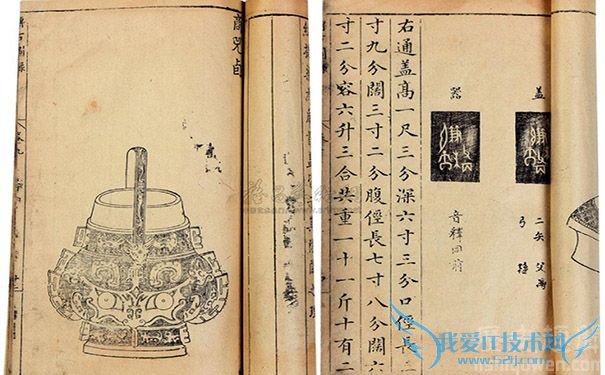 蓋
二矢 父
弓 孫
器
音釋同前
右通盖髙一尺三分深六寸三分口徑長三
寸九分闊三寸二分腹徑長七寸八分闊六
寸二分容六升三合共重一十一斤十有二
商兕卣
博古圖錄
卷九
我爱IT技术网
www.52ij.com